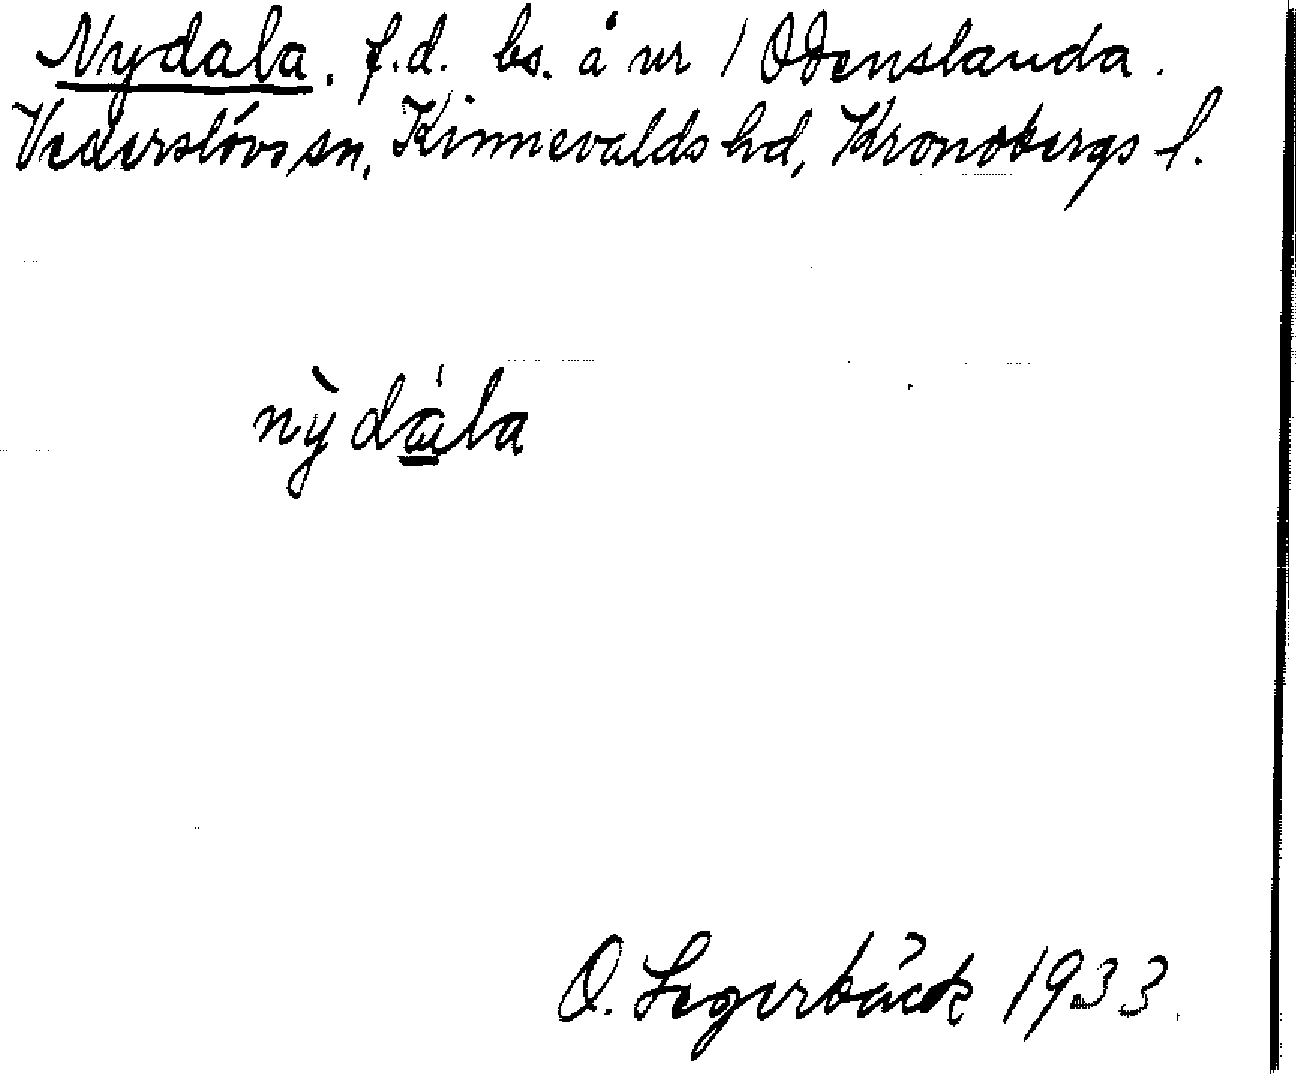 Nydala. f.d. bs. å nr 1 Odenslanda.
Vederslövs sn, Kinnevalds hd, Kronobergs l.
nỳdála
O. Segerbäck 1933.